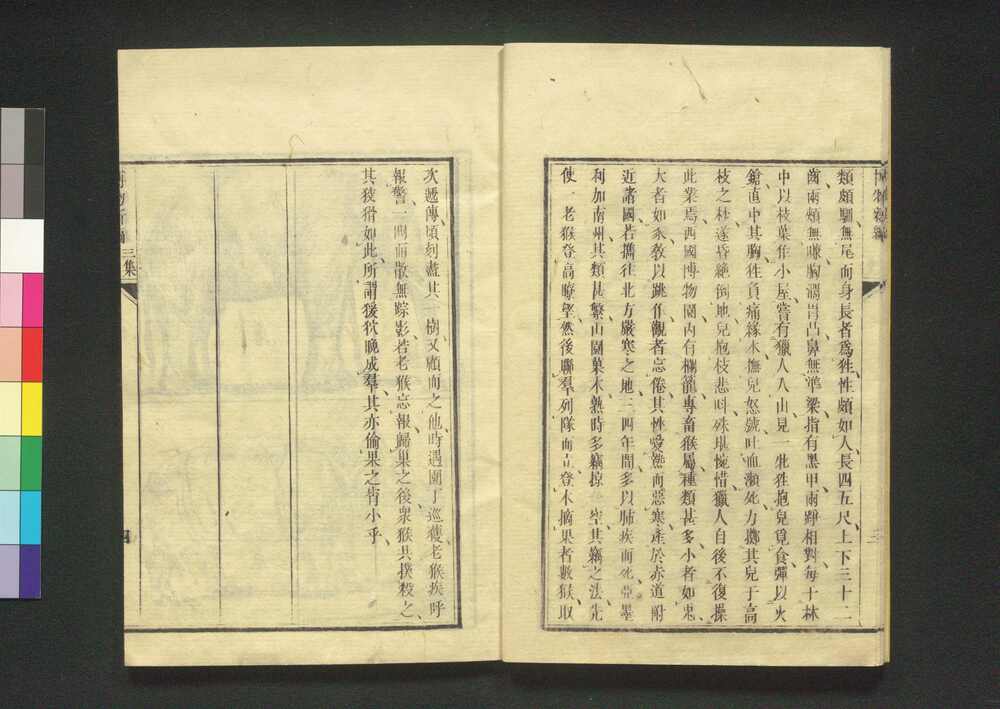 類頗馴無尾而身長者為狌性頗如人長四五尺上下三十二
齒兩頰無嗛胸濶凸鼻無準梁指有黑甲兩踭相對每于林
中以枝葉作小屋嘗有獵人入山見一牝狌抱兒覓食彈以火
鎗直中其胸狌負痛緣木撫兒怒號吐血瀕死力擲其兒于高
枝之杜遂昏絕倒地兒抱枝悲呌殊堪惋惜獵人自後不復操
此業焉西國博物園內有欄籠專畜猴屬種類甚多小者如鼠
大者如豕教以跳作觀者忘倦其性愛熱而惡寒產於赤道附
近諸國若攜往北方嚴寒之地三四年間多以肺疾而死亞墨
利加南州其類甚繁山園菓木熟時多竊掠一空其竊之法先
使一老猴登高瞭望然後聯羣列隊而立登木摘果者數猴取
次遞傳頃刻盡其一樹又顧而之他時遇園丁巡獲老猴疾呼
報警一鬨而散無踪影若老猴忘報歸巢之後衆猴共撲殺之
其狡猾如此所謂猨狖晚成羣其亦偷果之宵小乎
博物新編
三集
四
博物新編
三